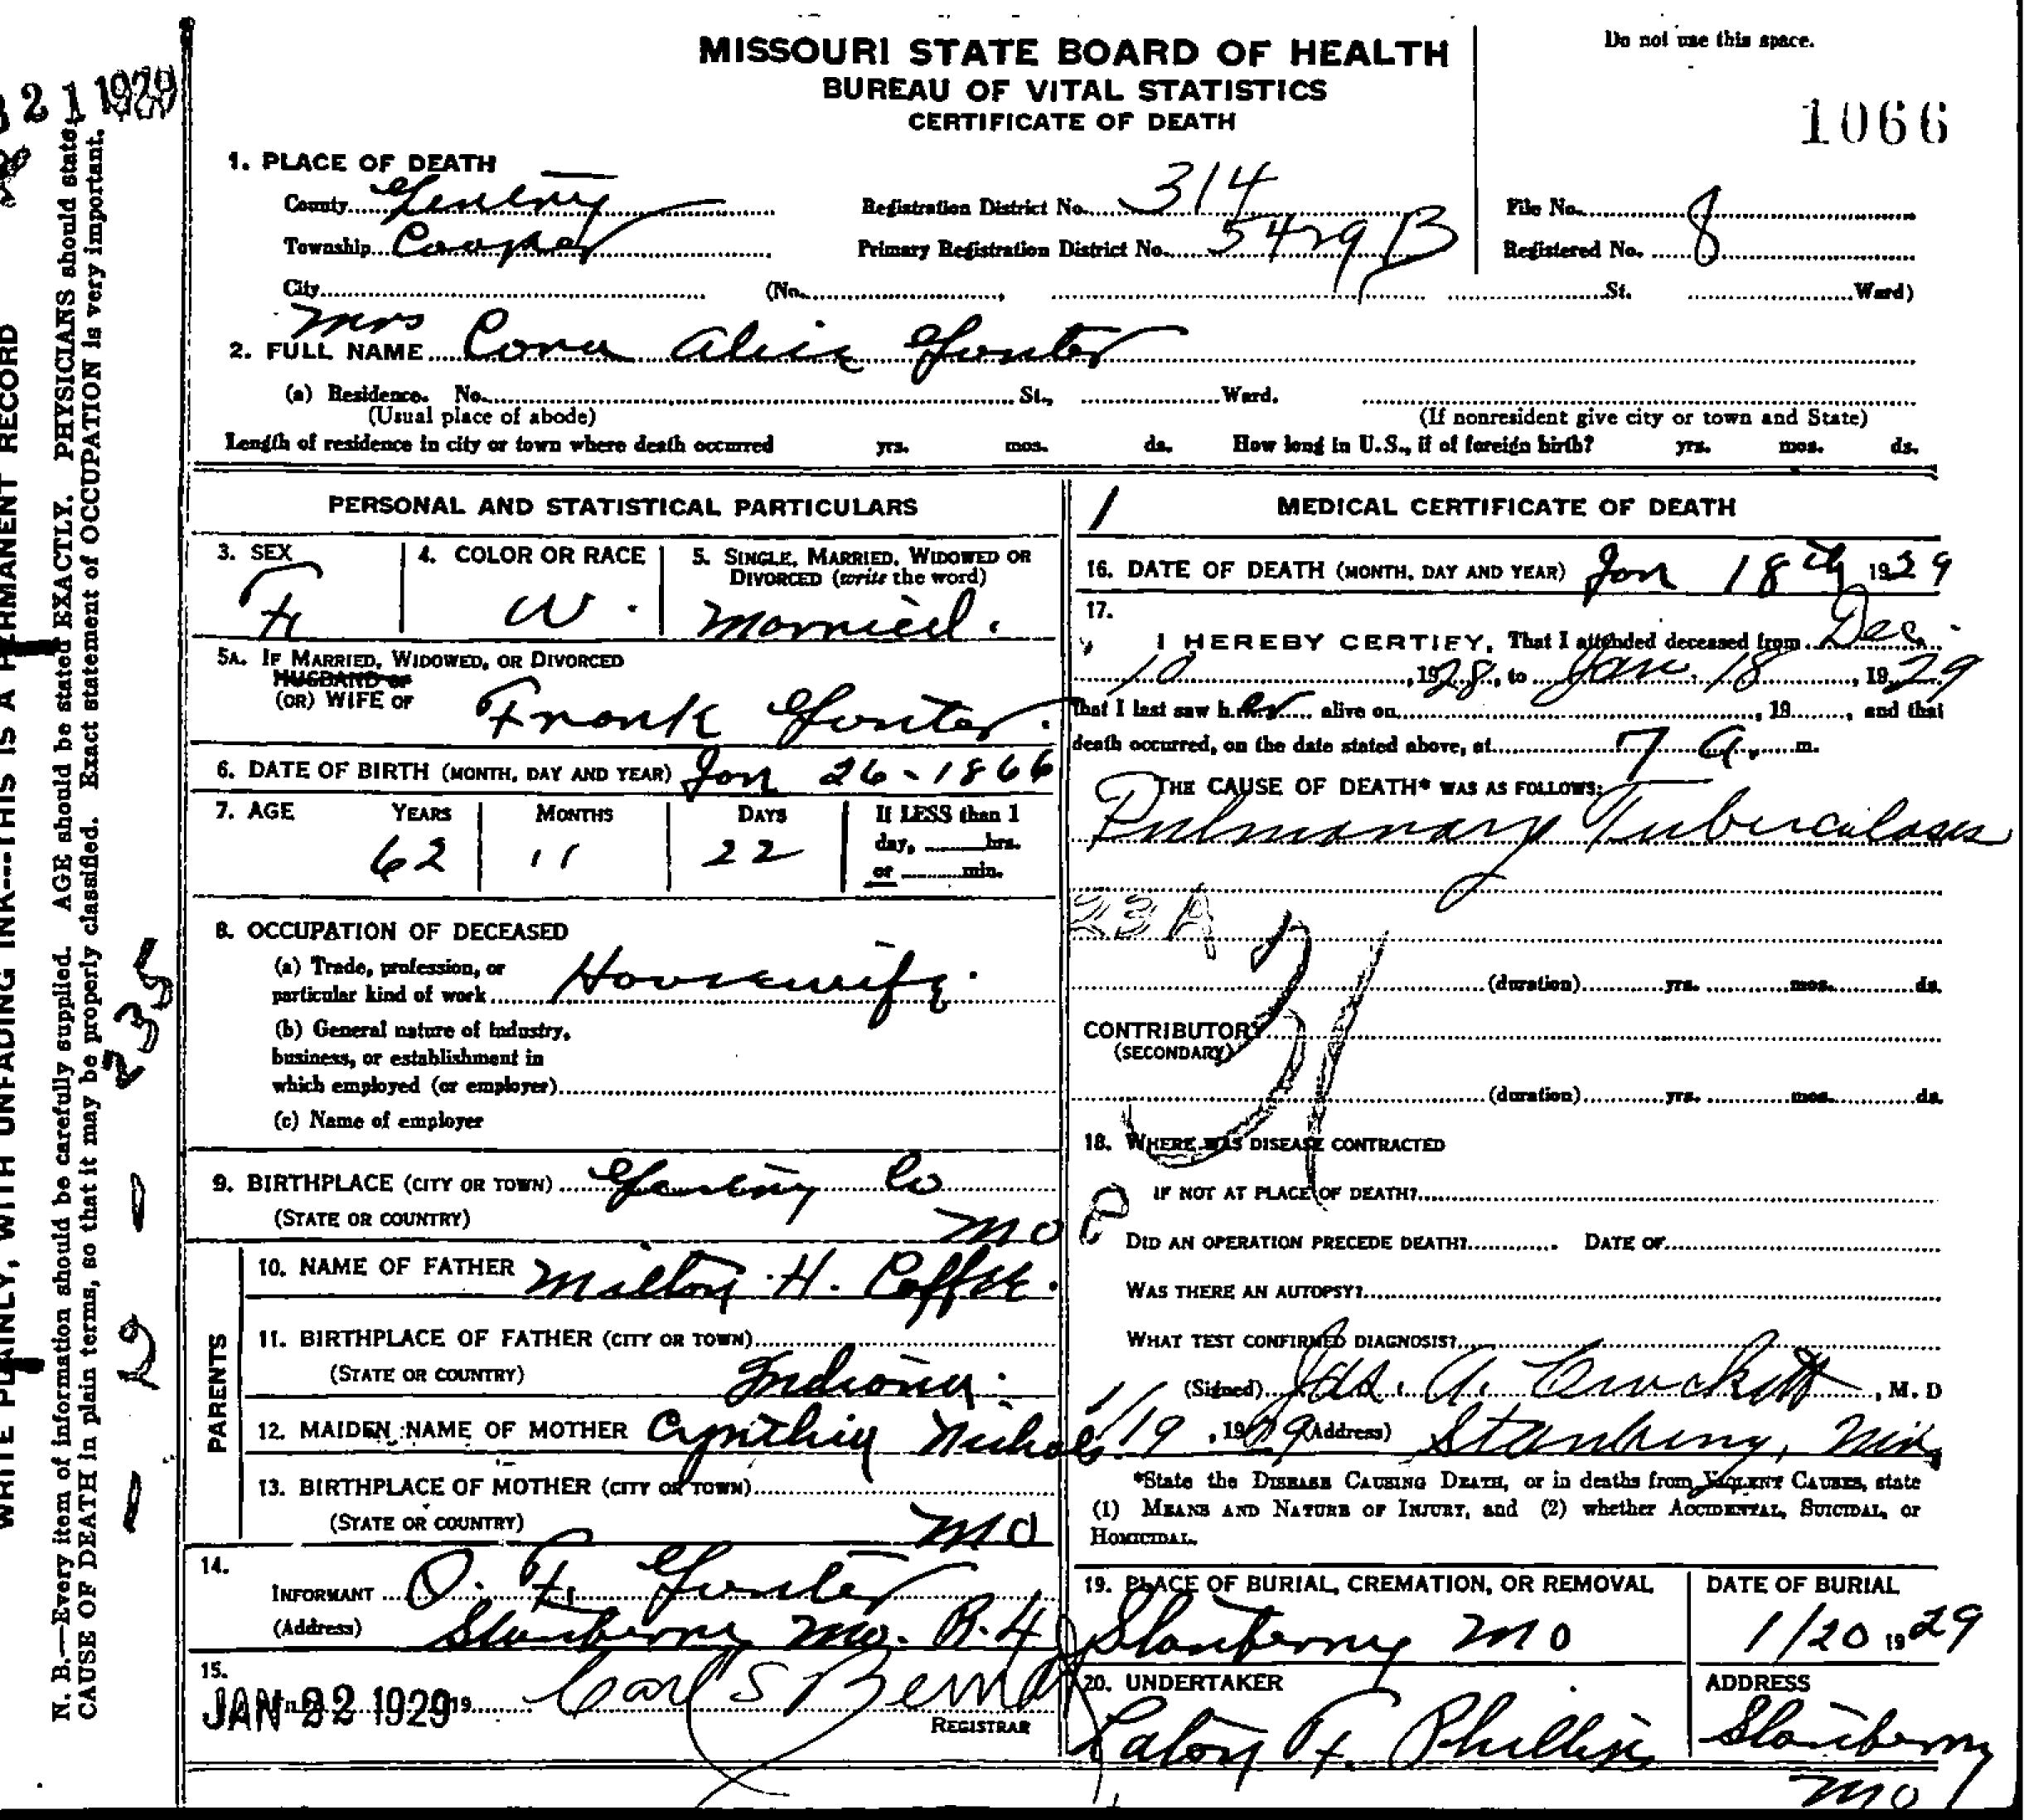 MISSOURI STATE BOARD OF HEALTH
BUREAU OF VITAL STATISTICS
CERTIFICATE OF DEATH
Do not use this space.
1066
1. PLACE OF DEATH
County Gentry Registration District No. 314 File No.
Township Cooper Primary Registration District No. 5429 B Registered No. 8
City (No. , St. Ward)
2. FULL NAME Mrs Cora Alice
(a) Residence. No. St., Ward.
(Usual place of abode) (If nonresident give city or town and State)
Length of residence in city or town where death occurred yrs. mos. ds. How long in U.S., if of foreign birth? yrs. mos. ds.
PERSONAL AND STATISTICAL PARTICULARS
3. SEX F
4. COLOR OR RACE W.
5. SINGLE, MARRIED, WIDOWED OR DIVORCED (write the word) Married.
5A. IF MARRIED, WIDOWED, OR DIVORCED
HUSBAND OF
(OR) WIFE OF Frank
6. DATE OF BIRTH (MONTH, DAY AND YEAR) Jan 26-1866
7. AGE YEARS MONTHS DAYS If LESS than 1
62 11 22 day, hrs.
or min.
8. OCCUPATION OF DECEASED
(a) Trade, profession, or
particular kind of work Housewife.
(b) General nature of industry,
business, or establishment in
which employed (or employer)
(c) Name of employer
9. BIRTHPLACE (CITY OR TOWN) Gentry Co
(STATE OR COUNTRY) Mo
PARENTS
10. NAME OF FATHER Milton H.
11. BIRTHPLACE OF FATHER (CITY OR TOWN)
(STATE OR COUNTRY) Indiana.
12. MAIDEN NAME OF MOTHER Cynthia Nichols
13. BIRTHPLACE OF MOTHER (CITY OR TOWN)
(STATE OR COUNTRY) Mo
14.
INFORMANT O. F.
(Address) Stanberry Mo. R.4
15.
JAN 22 1929 19 Carl S
REGISTRAR
1 MEDICAL CERTIFICATE OF DEATH
16. DATE OF DEATH (MONTH, DAY AND YEAR) Jan 18th 1929
17.
I HEREBY CERTIFY, That I attended deceased from Dec.
10, 1928, to Jan. 18, 1929
that I last saw her alive on , 19 , and that
death occurred, on the date stated above, at 7 a. m.
THE CAUSE OF DEATH* WAS AS FOLLOWS:
Pulmonary Tuberculosis
23A
31
(duration) yrs. mos. ds.
CONTRIBUTORY
(SECONDARY)
(duration) yrs. mos. ds.
18. WHERE WAS DISEASE CONTRACTED
IF NOT AT PLACE OF DEATH?
DID AN OPERATION PRECEDE DEATH? DATE OF
WAS THERE AN AUTOPSY?
WHAT TEST CONFIRMED DIAGNOSIS?
(Signed) Jas. A. Crockett, M. D
1/19, 1929 (Address) Stanberry, Mo
*State the DISEASE CAUSING DEATH, or in deaths from VIOLENT CAUSES, state
(1) MEANS AND NATURE OF INJURY, and (2) whether ACCIDENTAL, SUICIDAL, or
HOMICIDAL.
19. PLACE OF BURIAL, CREMATION, OR REMOVAL DATE OF BURIAL
Stanberry Mo 1/20 1929
20. UNDERTAKER ADDRESS
F. Phillips Stanberry
Mo
21 1929
WRITE PLAINLY, WITH UNFADING INK---THIS IS A PERMANENT RECORD
N. B.—Every item of information should be carefully supplied. AGE should be stated EXACTLY. PHYSICIANS should state
CAUSE OF DEATH in plain terms, so that it may be properly classified. Exact statement of OCCUPATION is very important.
1-2-1-235